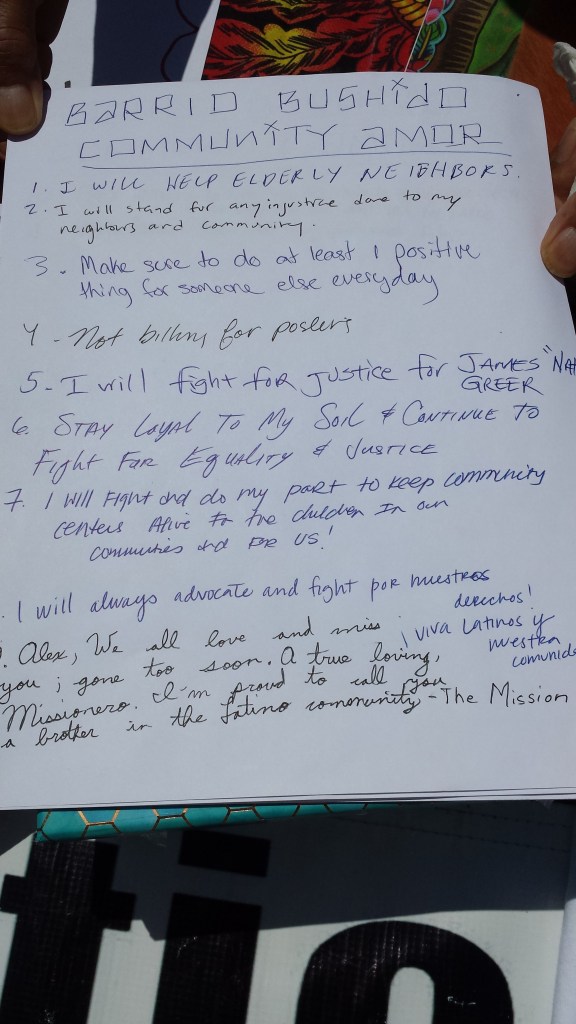 BARRIO BUSHIDO
COMMUNITY AMOR
1. I WILL HELP ELDERLY NEIGHBORS.
2. I will stand for any injustice done to my
neighbors and community.
3. Make sure to do at least 1 positive
thing for someone else everyday
4 - Not for posters
5 - I will fight for justice for JAMES "NA
GREER
6. STAY Loyal To My Soil & CONTINUE TO
Fight For EQUALITY & JUSTICE
7. I will Fight and do my part to keep community
centers Alive for the children In our
communities and FOR US!
. I will always advocate and fight por nuestros
derechos!
¡ Viva Latinos y
nuestra
comunida
. Alex, We all love and miss
you ; gone too soon. A true loving,
Missionero. I'm proud to call you
a brother in the Latino community - The Mission
tio